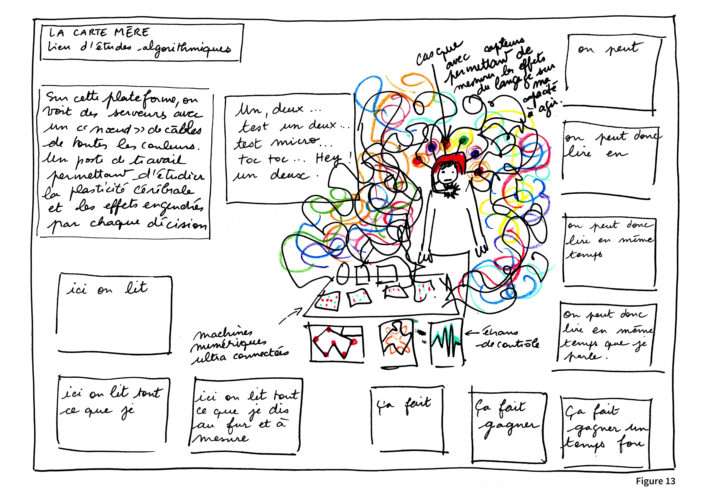 LA CARTE MÈRE
Lieu d'études algorithmiques
Sur cette plateforme, on
voit des serveurs avec
un « nœud » de câbles
de toutes les couleurs.
Un poste de travail
permettant d'étudier
la plasticité cérébrale
et les effets engendrés
par chaque décision
Un, deux...
test un deux...
test micro...
toc toc... Hey!
un deux.
casque
avec capteurs
permettant de
mesurer les effets
du langage sur
ma
capacité
à
agir.
on peut
on peut donc
lire en
on peut donc
lire en même
temps
on peut donc
lire en même
temps que je
parle.
ici on lit
machines
numériques
ultra connectées
← écrans
de contrôle
ici on lit tout
ce que je
ici on lit tout
ce que je dis
au fur et à
mesure
Ça fait
Ça fait
gagner
Ça fait
gagner un
temps fou
Figure 13